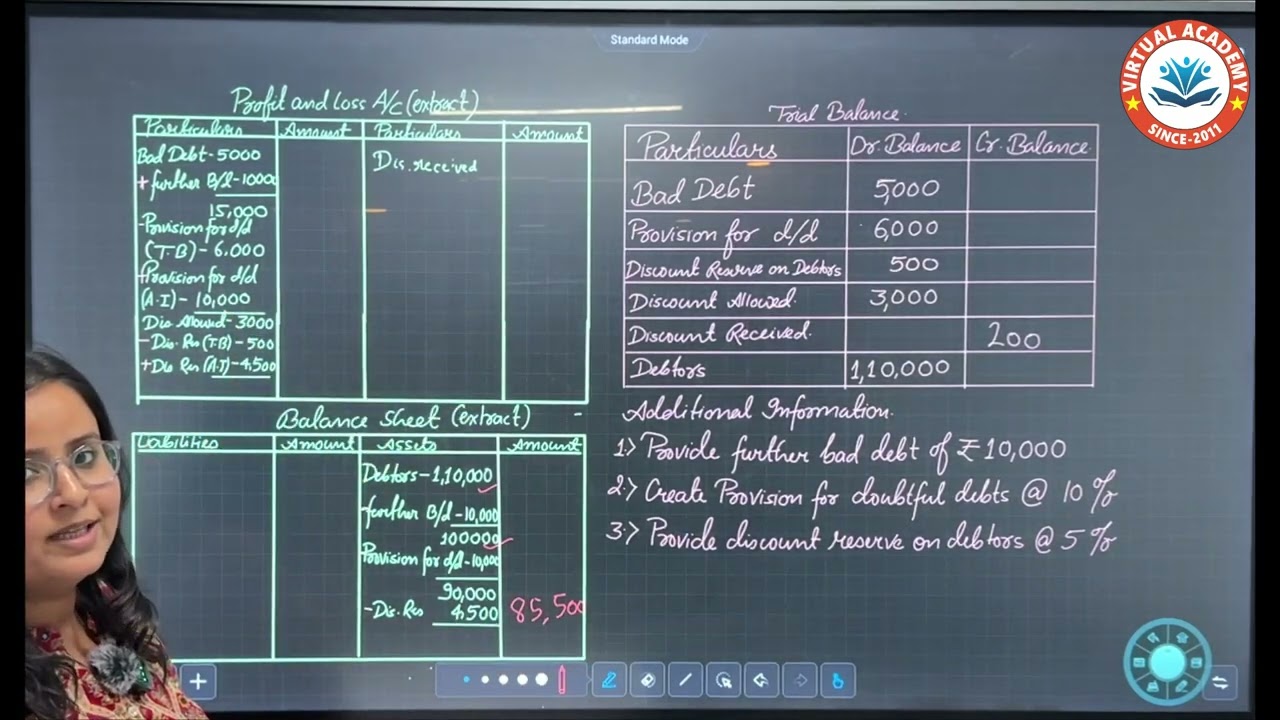 Standard Mode
VIRTUAL ACADEMY
SINCE-2011
Profit and Loss A/C (extract)
Particulars Amount Particulars Amount
Bad Debt - 5000 Dis. received
+ further B/d - 10000
15,000
- Provision for d/d
(T.B) - 6.000
+ Provision for d/d
(A.I) - 10,000
Dis Allowed - 3000
- Dis. Res (T.B) - 500
+ Dis Res (A.I) - 4,500
Balance Sheet (extract)
Liabilities Amount Assets Amount
Debtors - 1,10,000
- further B/d - 10,000
100000
Provision for d/d - 10,000
90,000
- Dis. Res 4,500 85,500
Trial Balance.
Particulars Dr. Balance Cr. Balance
Bad Debt 5,000
Provision for d/d 6,000
Discount Reserve on Debtors 500
Discount Allowed. 3,000
Discount Received. 200
Debtors 1,10,000
Additional Information.
1.> Provide further bad debt of ₹ 10,000
2.> Create Provision for doubtful debts @ 10 %
3.> Provide discount reserve on debtors @ 5 %